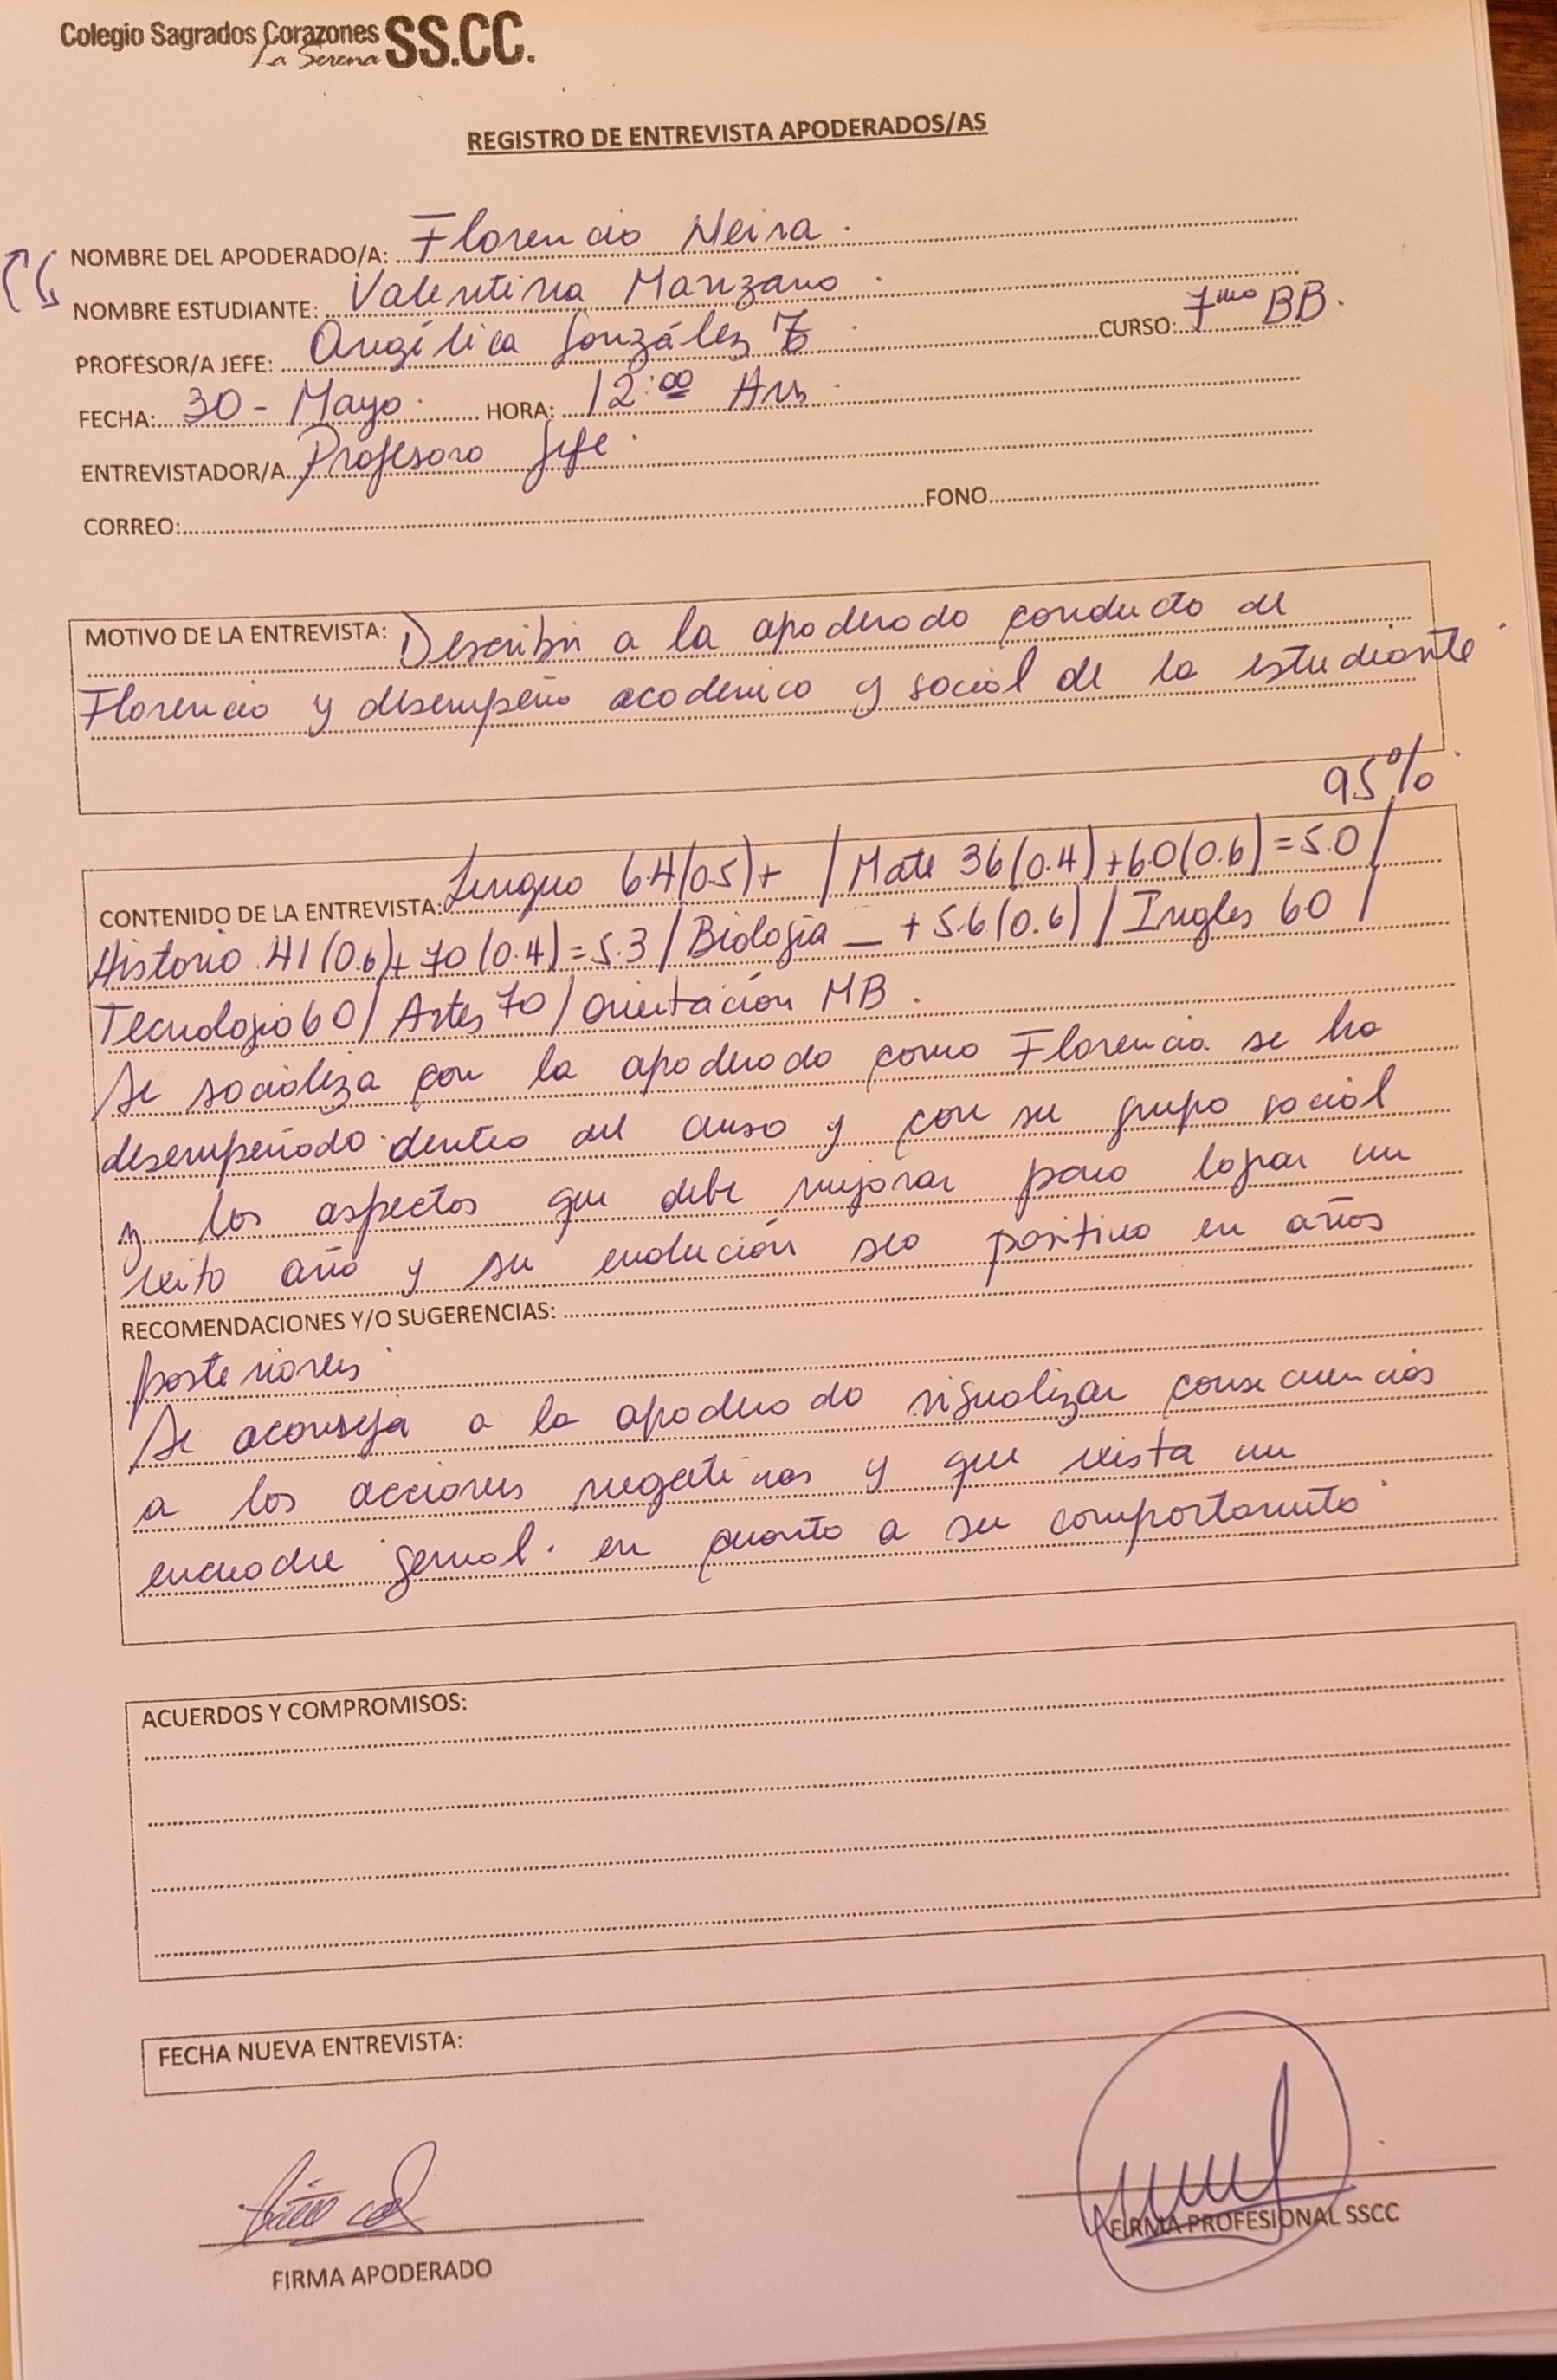 Colegio Sagrados Corazones SS.CC.
La Serena
REGISTRO DE ENTREVISTA APODERADOS/AS
NOMBRE DEL APODERADO/A: Florencia Neira.
NOMBRE ESTUDIANTE: Valentina Manzano.
PROFESOR/A JEFE: Angélica González Z. CURSO: 7mo BB.
FECHA: 30 - Mayo. HORA: 12:00 Am.
ENTREVISTADOR/A Profesora Jefe.
CORREO: FONO
MOTIVO DE LA ENTREVISTA: Describir a la apoderada conducta de
Florencia y desempeño academico y social de la estudiante.
95%.
CONTENIDO DE LA ENTREVISTA: Lengua 64(0.5)+ / Mate 36(0.4)+6.0(0.6)=5.0/
Historia 41(0.6)+70(0.4)=5.3/Biología _ +5.6(0.6)/Ingles 60/
Tecnologia 60/ Artes 70/ Orientación MB.
Se socializa con la apoderada como Florencia se ha
desempeñado dentro del curso y con su grupo social
y los aspectos que debe mejorar para lograr un
exito año y su evolución sea positiva en años
RECOMENDACIONES Y/O SUGERENCIAS:
posteriores.
Se aconseja a la apoderada consecuencias
a las acciones negativas y que exista un
encuadre en cuanto a su comportamiento.
ACUERDOS Y COMPROMISOS:
FECHA NUEVA ENTREVISTA:
FIRMA APODERADO
FIRMA PROFESIONAL SSCC